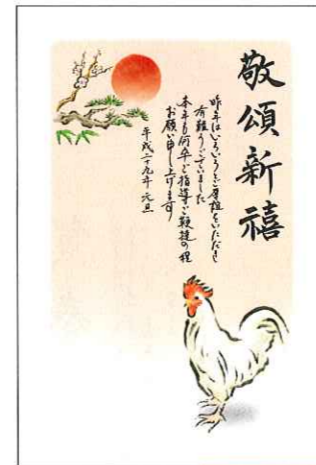 敬頌新禧
昨年はいろいろご厚誼をいただき
有難うございました
本年も何卒ご指導ご鞭撻の程
お願い申し上げます
平成二十九年 元旦